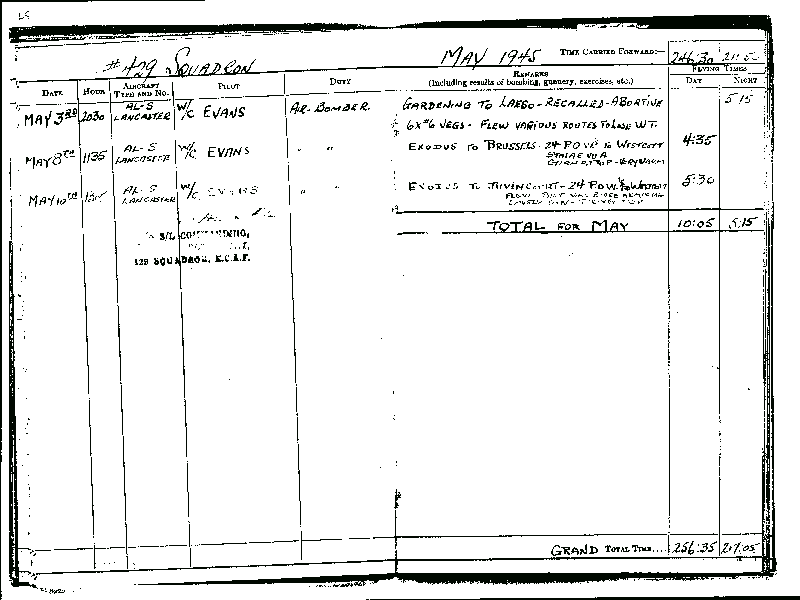 # 429 SQUADRON
MAY 1945 TIME CARRIED FORWARD:—
DATE HOUR AIRCRAFT TYPE AND NO. PILOT DUTY REMARKS (Including results of bombing, gunnery, exercises, etc.) FLYING TIMES DAY NIGHT
MAY 3RD 2030 AL-S LANCASTER W/C EVANS AR-BOMBER. GARDENING TO LAESO - RECALLED - ABORTIVE 5 15
6X#6 VEGS - FLEW VARIOUS ROUTES TO LOSE WT.
MAY 8TH 1135 AL-S LANCASTER W/C EVANS " " EXODUS TO BRUSSELS - 24 POWS TO WESTCOTT 4:35
MAY 10TH AL-S LANCASTER W/C EVANS " " EXODUS TO JUVINCOURT - 24 P.O.W. TO WESTCOTT 5:30
TOTAL FOR MAY 10:05 5:15
S/L COMMANDING,
SQUADRON, R.C.A.F.
GRAND TOTAL TIME.... 256:35 217:05